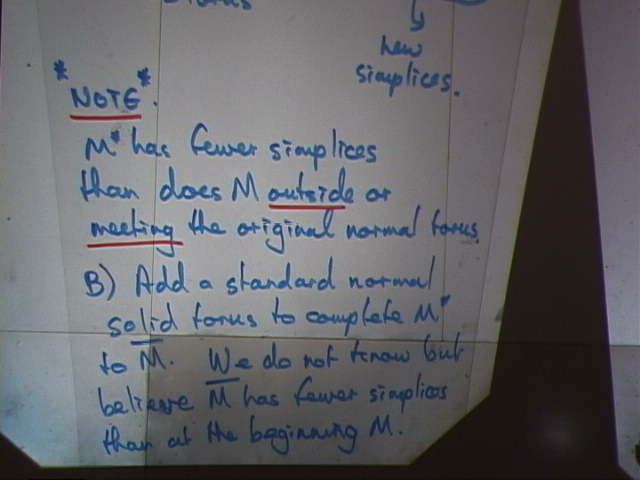 new
simplices.
* NOTE *.
M* has fewer simplices
than does M outside or
meeting the original normal torus
B) Add a standard normal
solid torus to complete M*
to M̅. We do not know but
believe M̅ has fewer simplices
than at the beginning M.